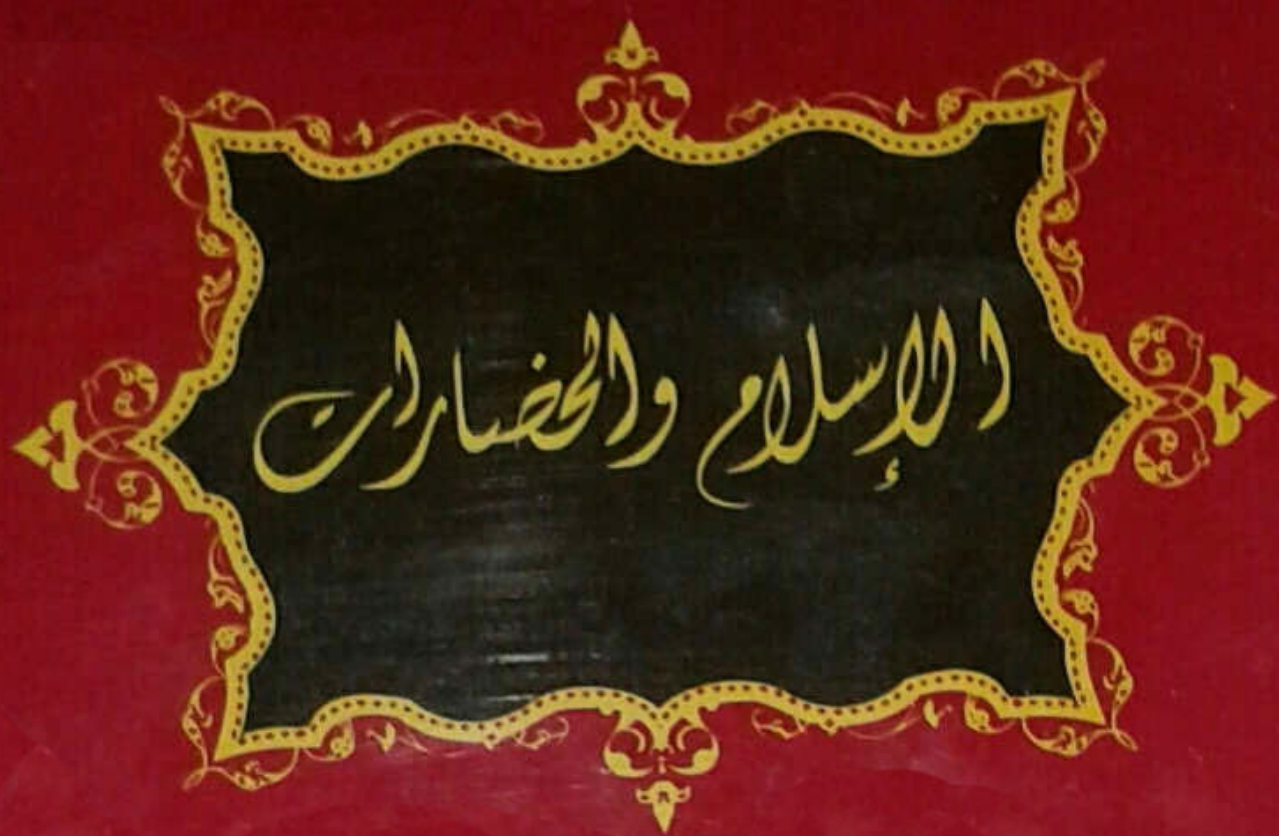 الإسلام والحضارات